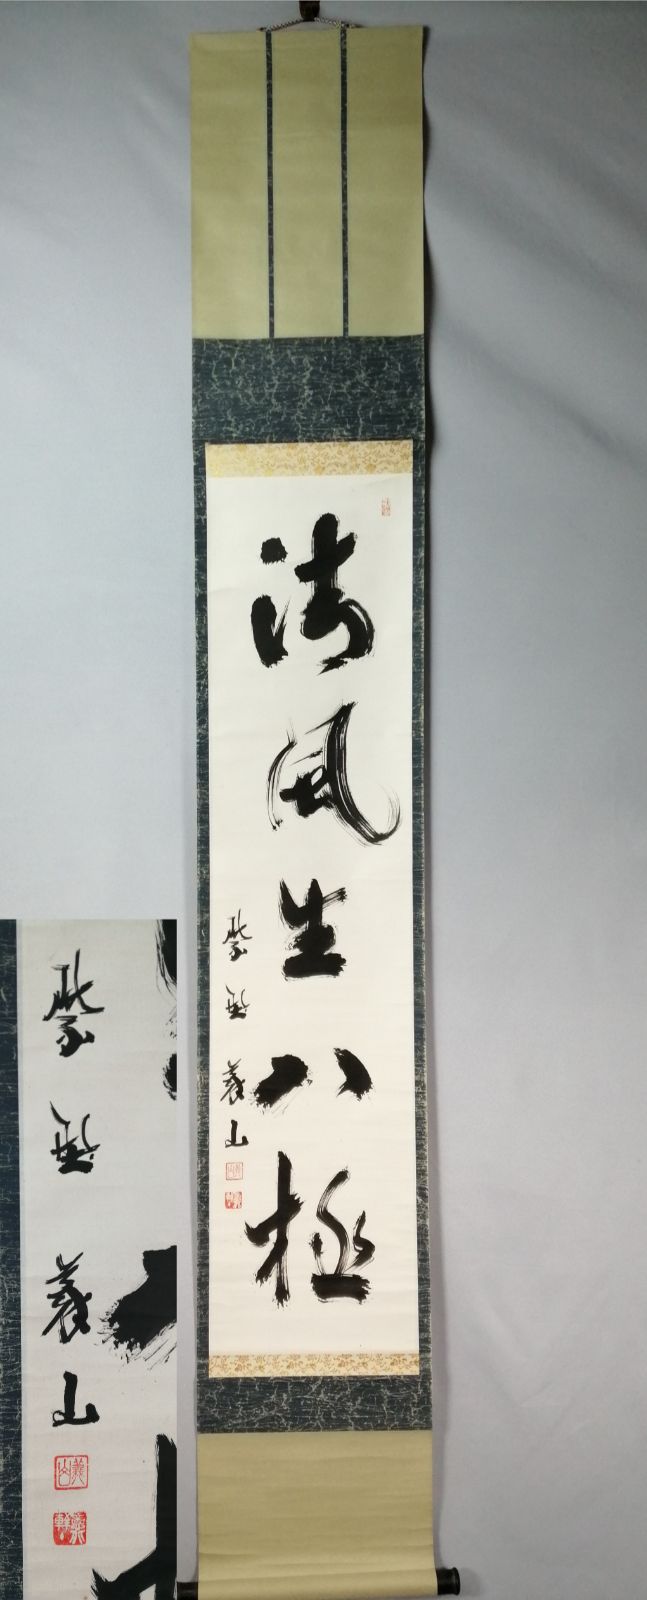 清風生八極
紫野 義山
義山